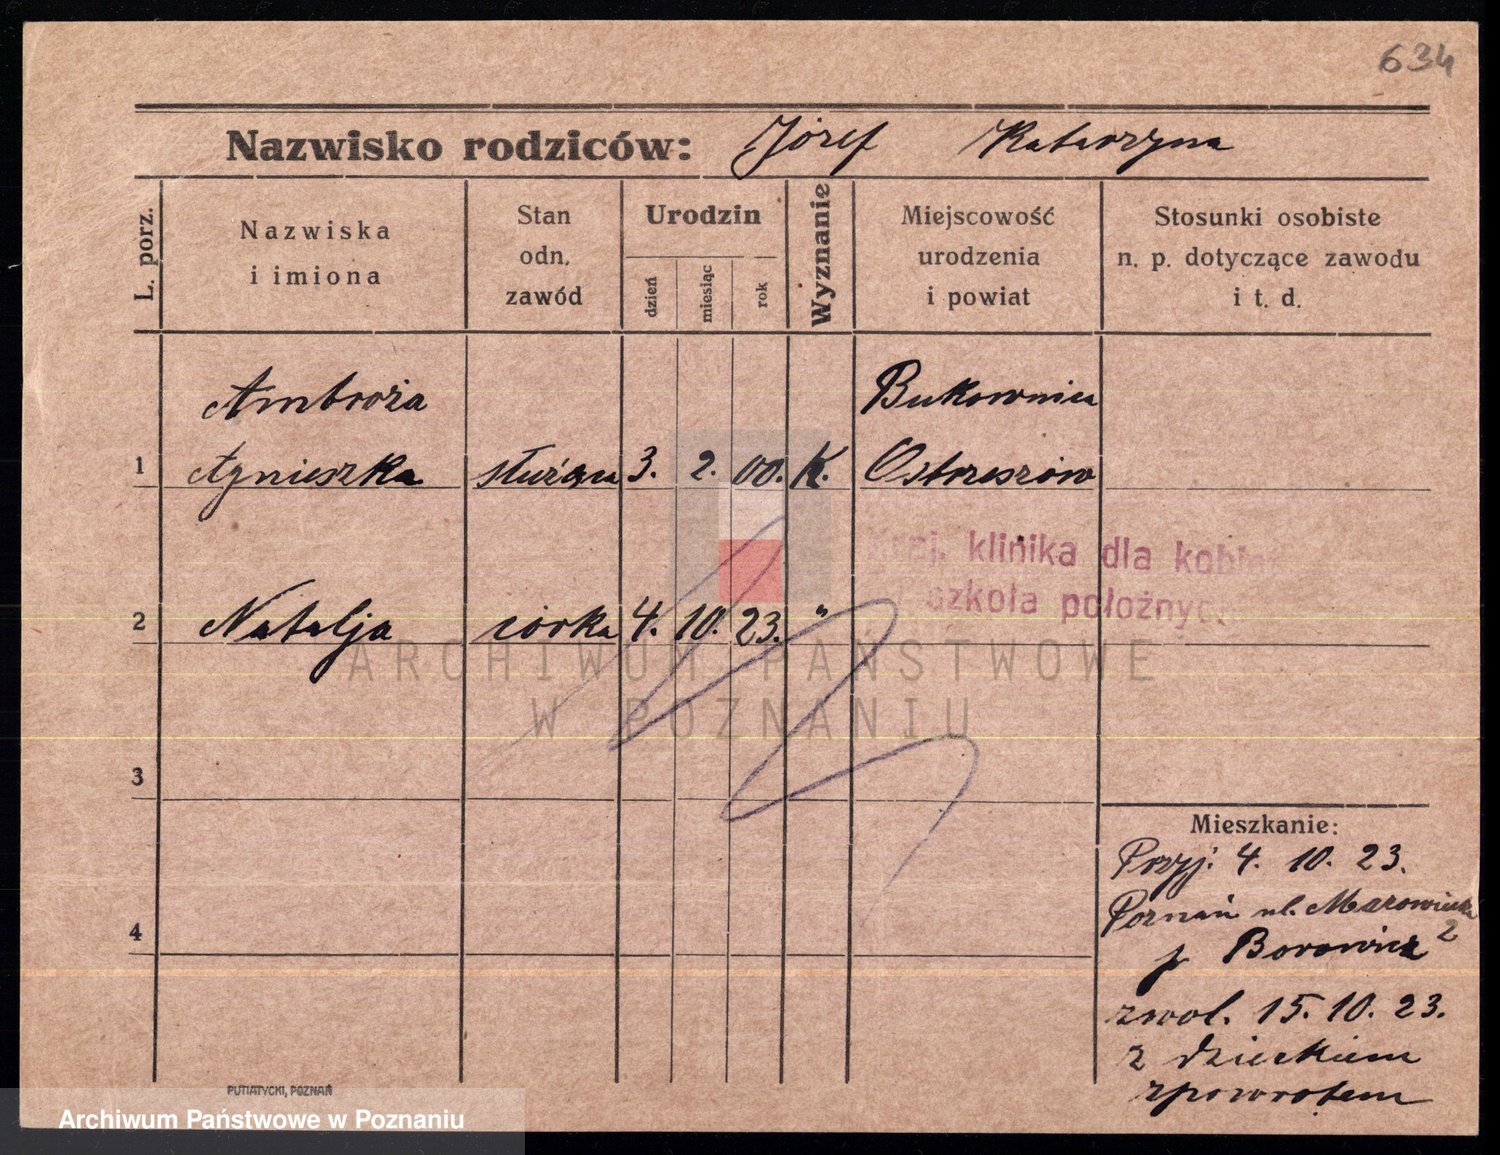 634
Nazwisko rodziców: Józef Katarzyna
L. porz.
Nazwiska
i imiona
Stan
odn.
zawód
Urodzin
dzień
miesiąc
rok
Wyznanie
Miejscowość
urodzenia
i powiat
Stosunki osobiste
n. p. dotyczące zawodu
i t. d.
Ambroża Bukownica
1 Agnieszka służąca 3. 2. 00. K. Ostrzeszów
klinika dla kobiet
szkoła położnych
2 Natalja córka 4. 10. 23. "
ARCHIWUM PAŃSTWOWE
W POZNANIU
3
Mieszkanie:
Przyj. 4. 10. 23.
Poznań ul. Mazowiecka
2
4
p Borowicz
zwol. 15. 10. 23.
z dzieckiem
zpowrotem
PUTIATYCKI, POZNAŃ
Archiwum Państwowe w Poznaniu